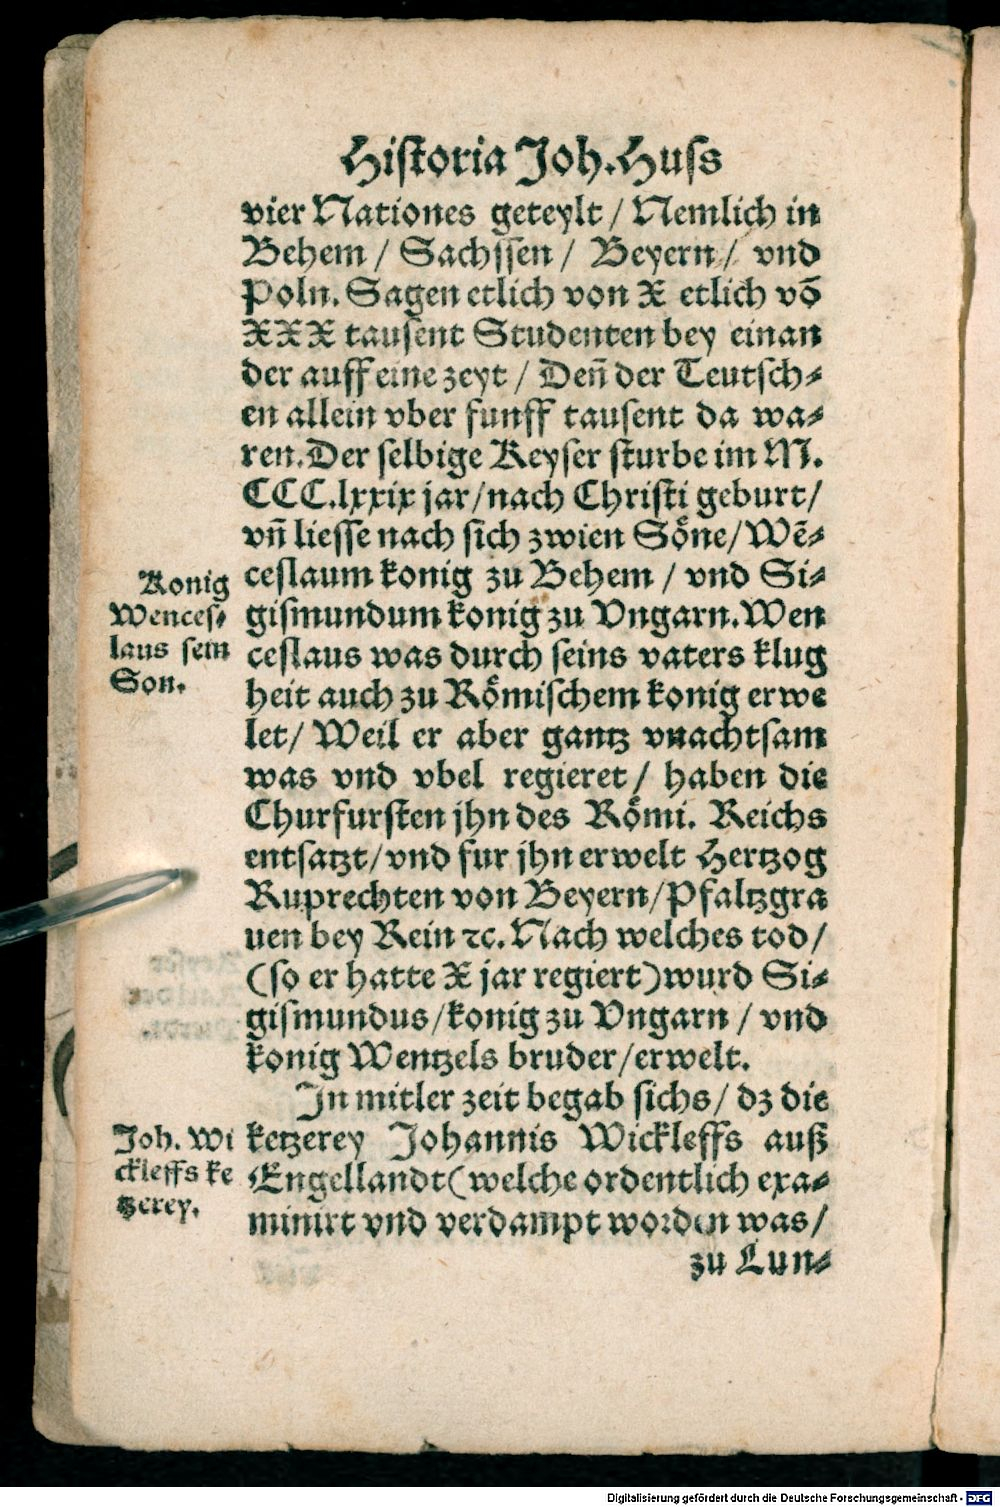 Historia Joh. Huss
vier Nationes geteylt / Nemlich in
Behem / Sachssen / Beyern / vnd
Poln. Sagen etlich von X etlich võ
XXX tausent Studenten bey einan
der auff eine zeyt / Den̄ der Teutsch⸗
en allein vber funff tausent da wa⸗
ren. Der selbige Keyser sturbe im M.
CCC.lxxix jar / nach Christi geburt /
vn̄ liesse nach sich zwien Söne / Wẽ⸗
ceslaum konig zu Behem / vnd Si⸗
gismundum konig zu Vngarn. Wen
ceslaus was durch seins vaters klug
heit auch zu Römischem konig erwe
let / Weil er aber gantz vnachtsam
was vnd vbel regieret / haben die
Churfursten jhn des Römi. Reichs
entsatzt / vnd fur jhn erwelt Hertzog
Ruprechten von Beyern / Pfaltzgra
uen bey Rein ꝛc. Nach welches tod /
(so er hatte X jar regiert) wurd Si⸗
gismundus / konig zu Vngarn / vnd
konig Wentzels bruder / erwelt.
In mitler zeit begab sichs / dz die
ketzerey Johannis Wickleffs auß
Engellandt (welche ordentlich exa⸗
minirt vnd verdampt worden was /
zu Lun⸗
Konig
Wences⸗
laus sein
Son.
Joh. Wi
ckleffs ke
tzerey.
Digitalisierung gefördert durch die Deutsche Forschungsgemeinschaft - DFG